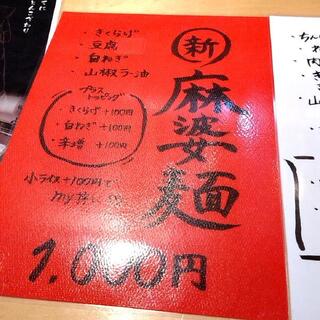 新
麻婆麺
・きくらげ
・豆腐
・白ねぎ
・山椒ラー油
プラス
トッピング
・きくらげ +100円
・白ねぎ +100円
・辛増 +100円
小ライス +100円で
1,000円